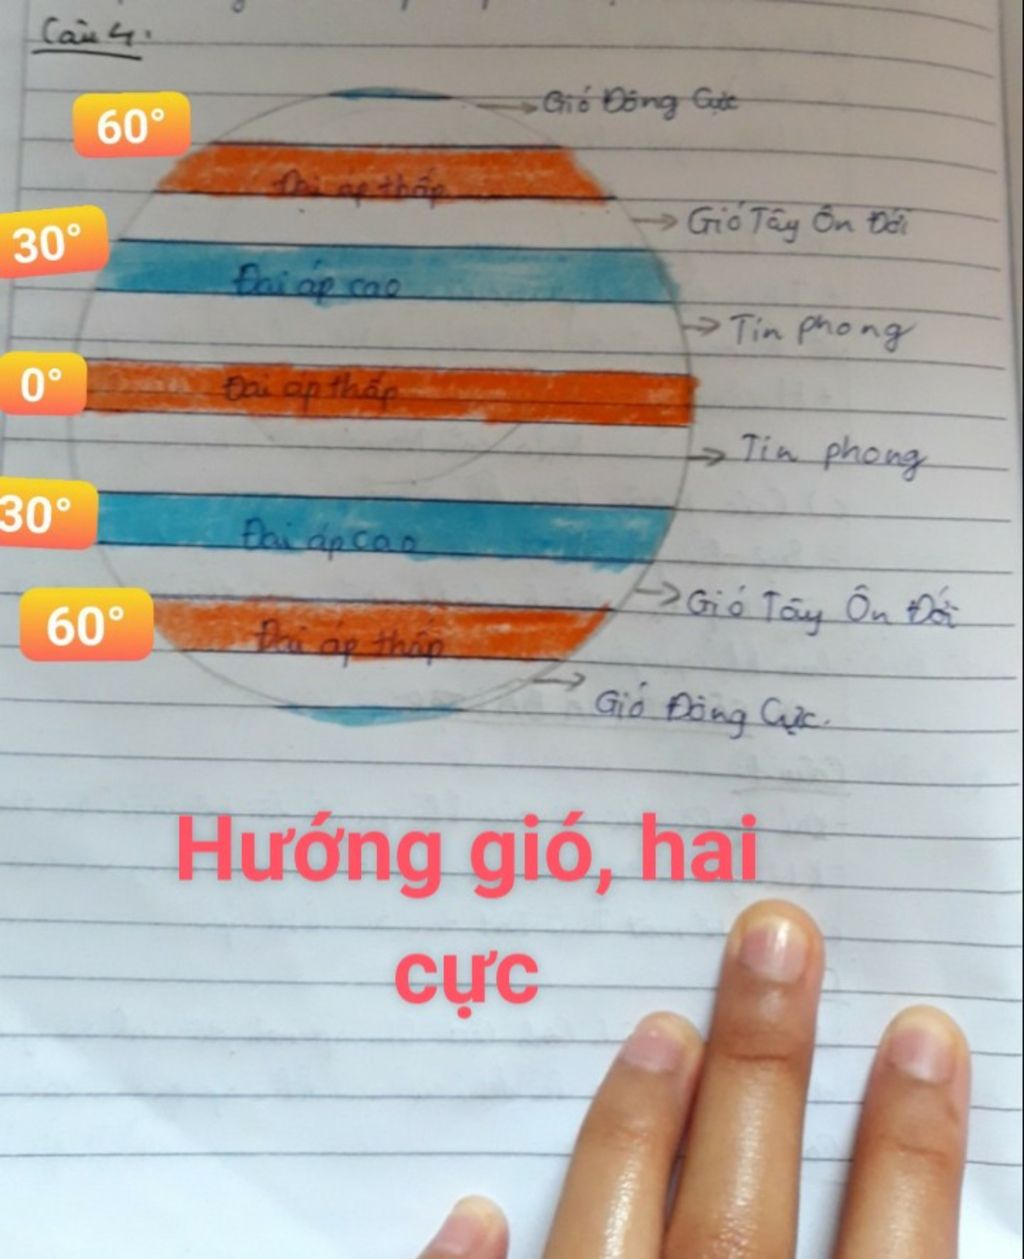 Câu 4:
60°
Gió Đông Cực
Đai áp thấp
Gió Tây Ôn Đới
30°
Đai áp cao
Tín phong
0°
Đai áp thấp
Tín phong
30°
Đai áp cao
Gió Tây Ôn Đới
60°
Đai áp thấp
Gió Đông Cực.
Hướng gió, hai
cực